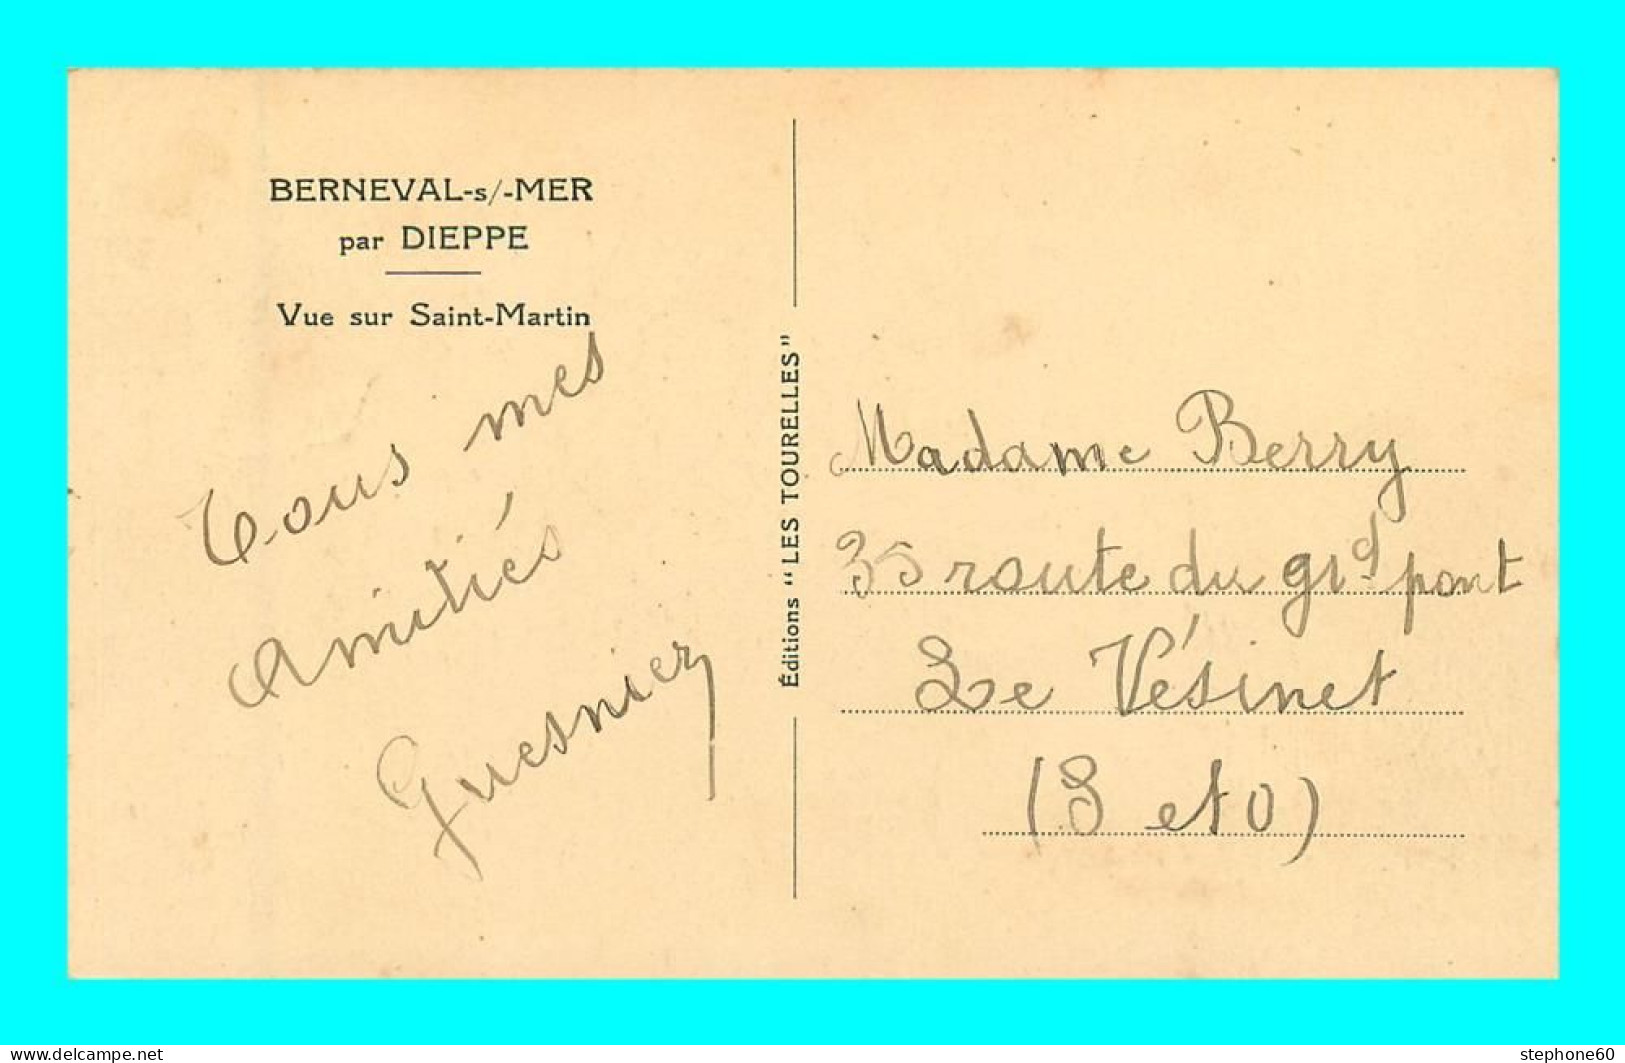 BERNEVAL-s/-MER
par DIEPPE
Vue sur Saint-Martin
Tous mes
Amitiés
Guesnier
Éditions "LES TOURELLES"
Madame Berry
35 route du grd pont
Le Vésinet
(S et O)
www.delcampe.net
stephone60